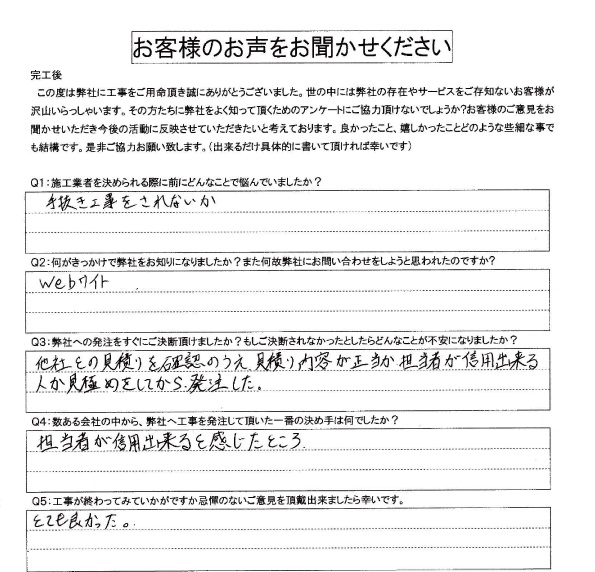 お客様のお声をお聞かせください
完工後
この度は弊社に工事をご用命頂き誠にありがとうございました。世の中には弊社の存在やサービスをご存知ないお客様が
沢山いらっしゃいます。その方たちに弊社をよく知って頂くためのアンケートにご協力頂けないでしょうか?お客様のご意見をお
聞かせいただき今後の活動に反映させていただきたいと考えております。良かったこと、嬉しかったことどのような些細な事で
も結構です。是非ご協力お願い致します。(出来るだけ具体的に書いて頂ければ幸いです)
Q1:施工業者を決められる際に前にどんなことで悩んでいましたか?
手抜き工事をされないか
Q2:何がきっかけで弊社をお知りになりましたか?また何故弊社にお問い合わせをしようと思われたのですか?
Webサイト
Q3:弊社への発注をすぐにご決断頂けましたか?もしご決断されなかったとしたらどんなことが不安になりましたか?
他社との見積りを確認のうえ、見積り内容が正当か担当者が信用出来る
人か見極めをしてから、発注した。
Q4:数ある会社の中から、弊社へ工事を発注して頂いた一番の決め手は何でしたか?
担当者が信用出来ると感じたところ
Q5:工事が終わってみていかがですか忌憚のないご意見を頂戴出来ましたら幸いです。
とても良かった。